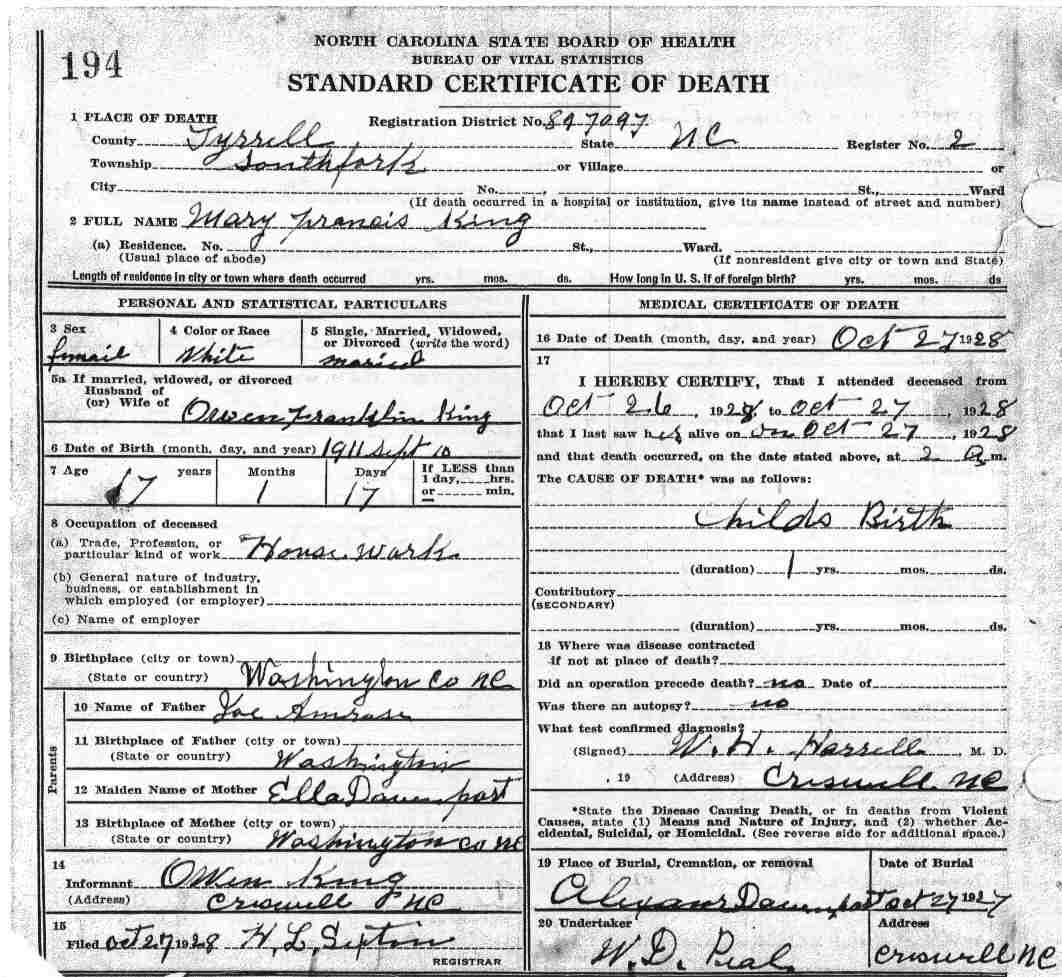 194
NORTH CAROLINA STATE BOARD OF HEALTH
BUREAU OF VITAL STATISTICS
STANDARD CERTIFICATE OF DEATH
1 PLACE OF DEATH Registration District No. 897097
County Tyrrell State NC Register No. 2
Township Southfork or Village or
City No. , St., Ward
(If death occurred in a hospital or institution, give its name instead of street and number)
2 FULL NAME Mary Francis King
(a) Residence. No. St., Ward.
(Usual place of abode) (If nonresident give city or town and State)
Length of residence in city or town where death occurred yrs. mos. ds. How long in U. S. if of foreign birth? yrs. mos. ds
PERSONAL AND STATISTICAL PARTICULARS
3 Sex 4 Color or Race 5 Single, Married, Widowed,
or Divorced (write the word)
femail White maried
5a If married, widowed, or divorced
Husband of
(or) Wife of Owen Franklin King
6 Date of Birth (month, day, and year) 1911 Sept 10
7 Age years Months Days If LESS than
1 day, hrs.
or min.
17 1 17
8 Occupation of deceased
(a) Trade, Profession, or
particular kind of work House Work
(b) General nature of industry,
business, or establishment in
which employed (or employer)
(c) Name of employer
9 Birthplace (city or town)
(State or country) Washington Co NC
Parents
10 Name of Father Joe Amrose
11 Birthplace of Father (city or town)
(State or country) Washington
12 Maiden Name of Mother Ella Davenport
13 Birthplace of Mother (city or town)
(State or country) Washington Co NC
14
Informant Owen King
(Address) Criswell NC
15
Filed Oct 27 1928 H. L.
REGISTRAR
MEDICAL CERTIFICATE OF DEATH
16 Date of Death (month, day, and year) Oct 27 1928
17
I HEREBY CERTIFY, That I attended deceased from
Oct 26, 1928 to Oct 27, 1928
that I last saw her alive on on Oct 27, 1928
and that death occurred, on the date stated above, at 2 a m.
The CAUSE OF DEATH* was as follows:
Childs Birth
(duration) 1 yrs. mos. ds.
Contributory
(SECONDARY)
(duration) yrs. mos. ds.
18 Where was disease contracted
if not at place of death?
Did an operation precede death? no Date of
Was there an autopsy? no
What test confirmed diagnosis?
(Signed) W. H. Harrell, M. D.
, 19 (Address) Criswell NC
*State the Disease Causing Death, or in deaths from Violent
Causes, state (1) Means and Nature of Injury, and (2) whether Ac-
cidental, Suicidal, or Homicidal. (See reverse side for additional space.)
19 Place of Burial, Cremation, or removal Date of Burial
Davenport Oct 27 1927
20 Undertaker Address
W. D. Peal Criswell NC